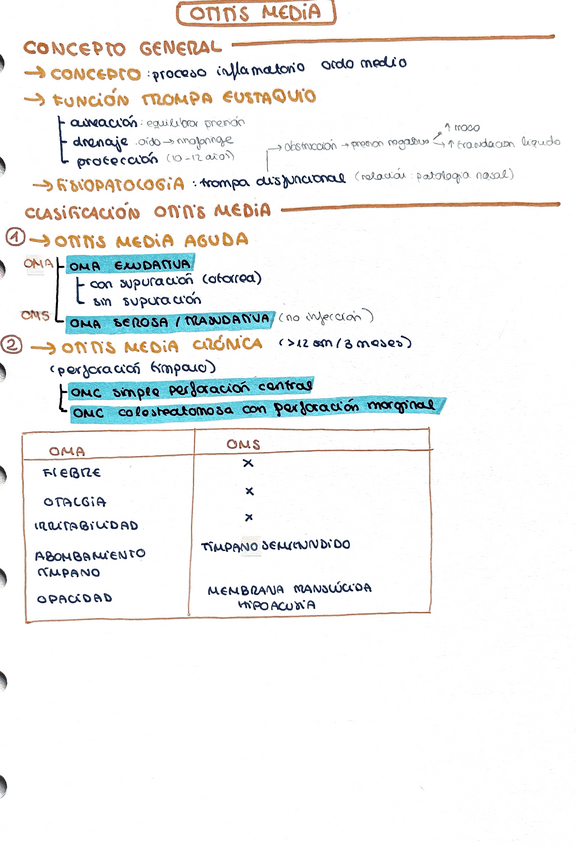 OTITIS MEDIA
CONCEPTO GENERAL
→ CONCEPTO: proceso inflamatorio oído medio
→ FUNCIÓN TROMPA EUSTAQUIO
aireación: equilibrar presión
drenaje oído → nasofaringe
protección (10-12 años)
→ obstrucción → presión negativa
↑ moco
↑ trasudación líquido
→ FISIOPATOLOGIA: trompa disfuncional (relación: patología nasal)
CLASIFICACIÓN OTITIS MEDIA
1 → OTITIS MEDIA AGUDA
OMA OMA EXUDATIVA
con supuración (otorrea)
sin supuración
OMS OMA SEROSA / TRASUDATIVA (no infección)
2 → OTITIS MEDIA CRÓNICA (>12 sem/3 meses)
(perforación tímpano)
OMC simple perforación central
OMC colesteatomosa con perforación marginal
OMA OMS
FIEBRE X
OTALGIA X
IRRITABILIDAD X
ABOMBAMIENTO TÍMPANO
TÍMPANO SEMIHUNDIDO
OPACIDAD
MEMBRANA TRANSLÚCIDA
HIPOACUSIA